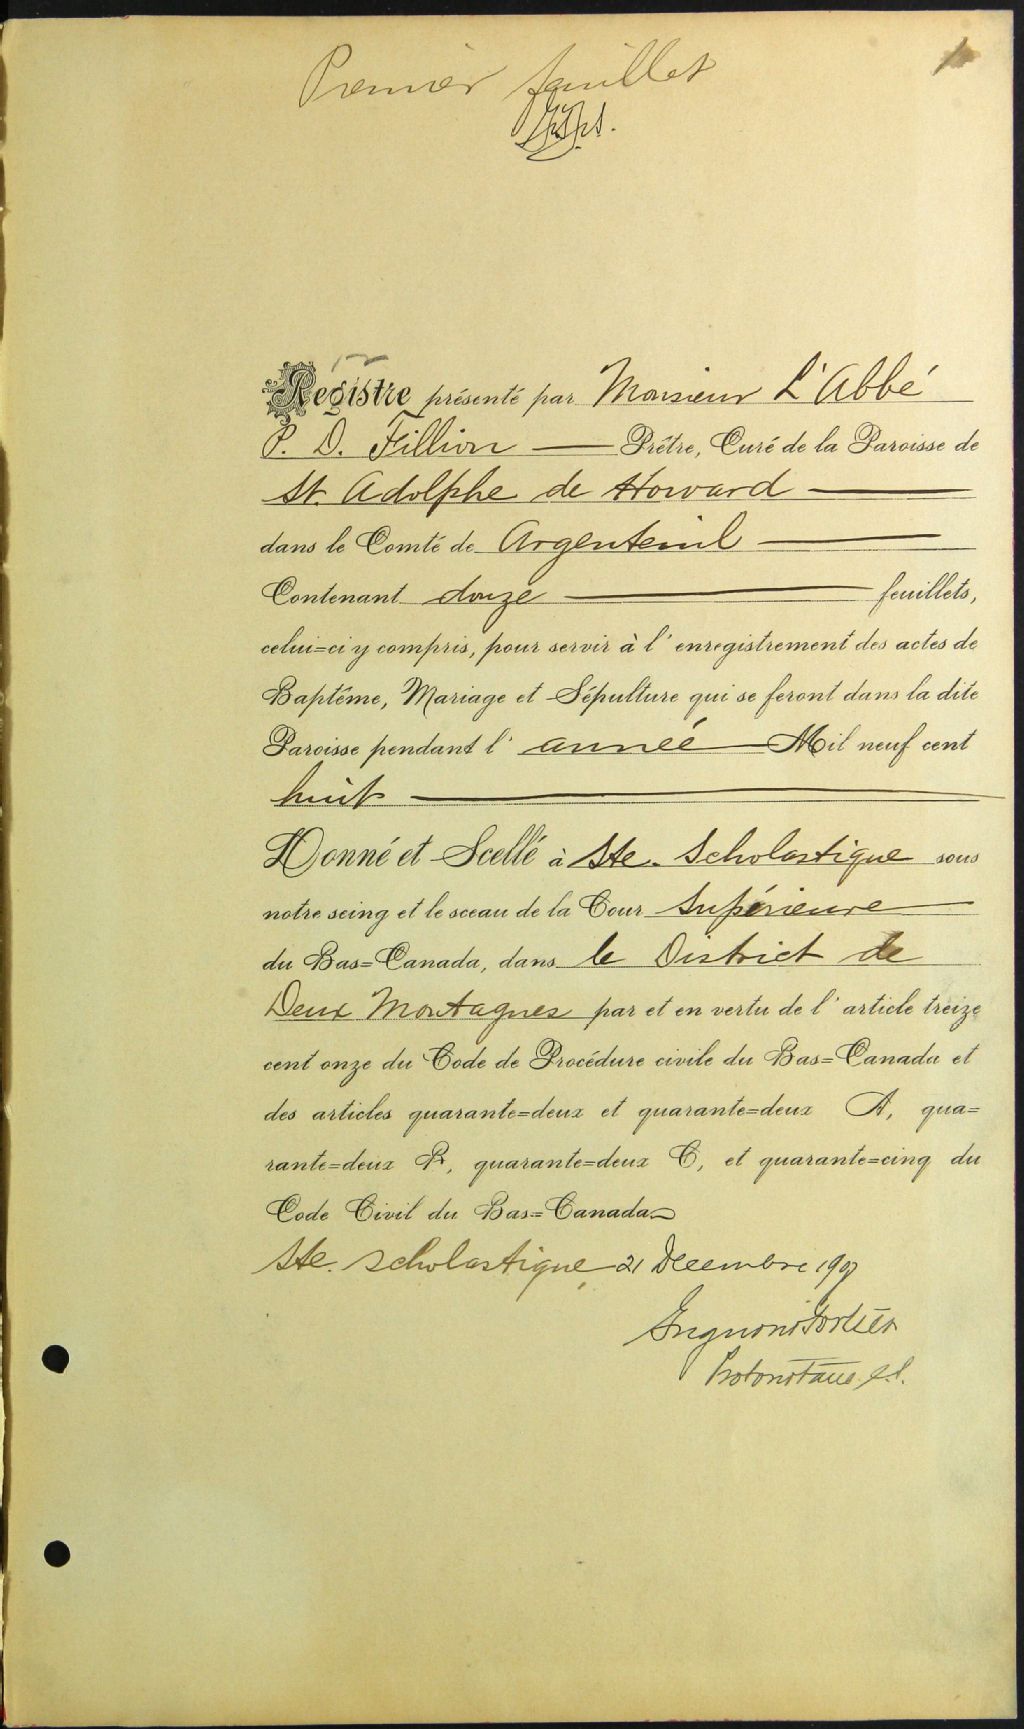 Premier feuillet
1
Registre présenté par Monsieur L'Abbé
P. D. Fillion — Prêtre, Curé de la Paroisse de
St. Adolphe de Howard —
dans le Comté de Argenteuil —
Contenant douze — feuillets,
celui=ci y compris, pour servir à l'enregistrement des actes de
Baptême, Mariage et Sépulture qui se feront dans la dite
Paroisse pendant l'année — Mil neuf cent
huit —
Donné et Scellé à Ste. Scholastique sous
notre seing et le sceau de la Cour Supérieure —
du Bas=Canada, dans le District de
Deux Montagnes par et en vertu de l'article treize
cent onze du Code de Procédure civile du Bas=Canada et
des articles quarante=deux et quarante=deux A, qua=
rante=deux B, quarante=deux C, et quarante=cinq du
Code Civil du Bas=Canada
Ste. Scholastique 21 Decembre 1907
Fortier
Protonotaire